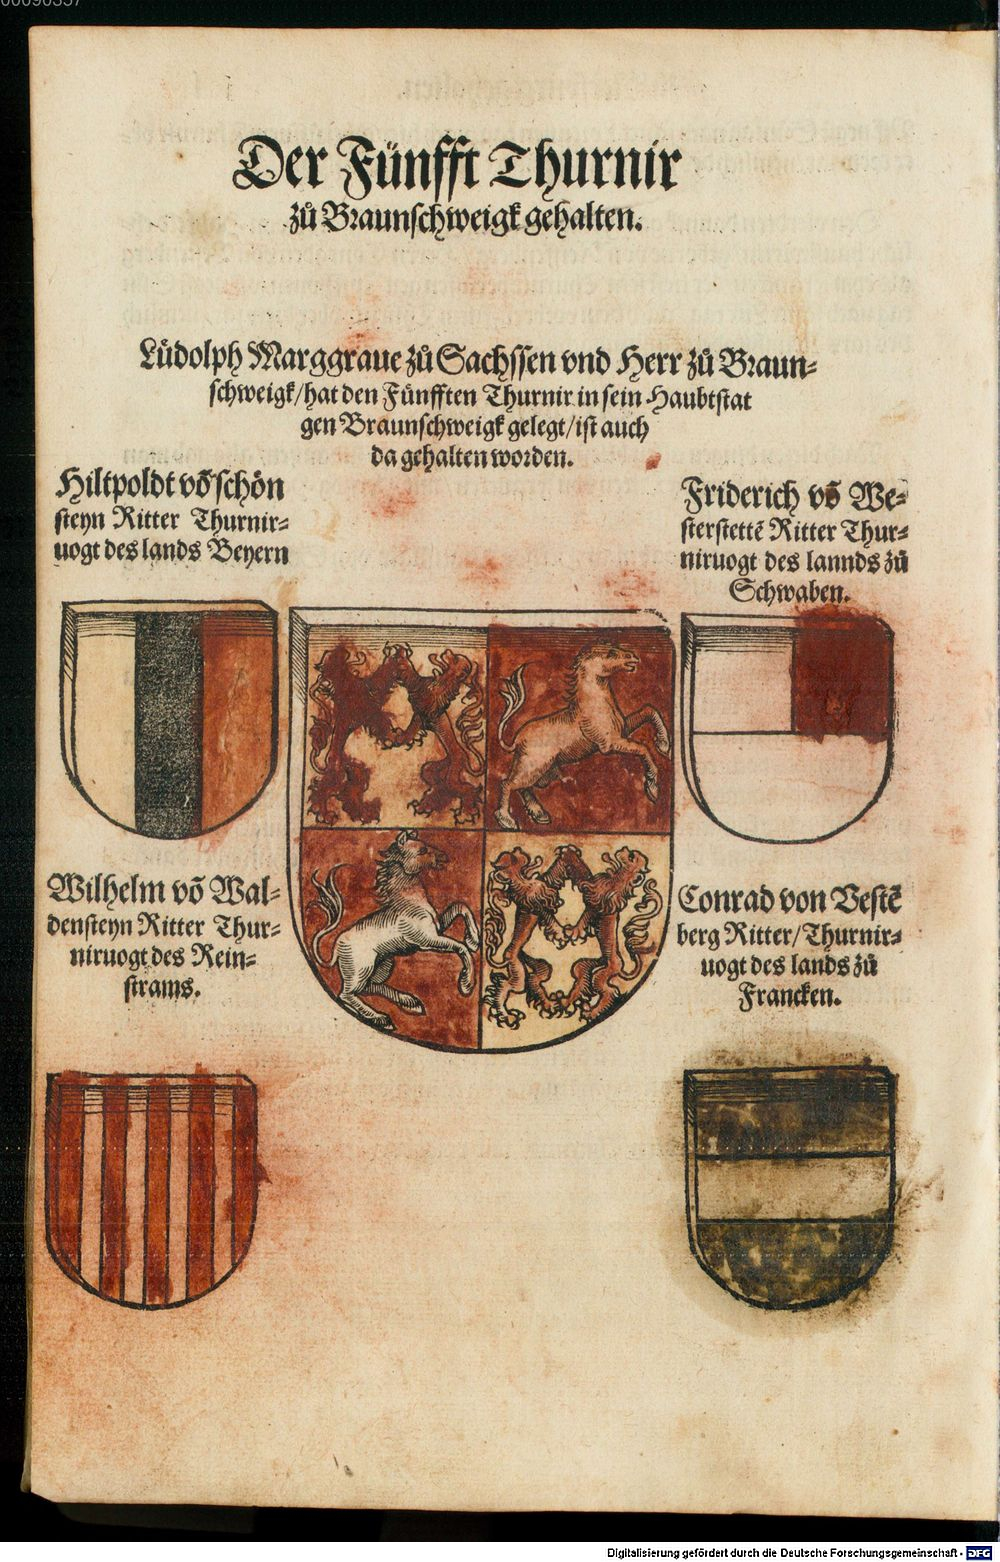 00090357
Der Fünfft Thurnir
zů Braunschweigk gehalten.
Lüdolph Marggraue zů Sachssen vnd Herr zů Braun=
schweigk/hat den Fünfften Thurnir in sein Haubtstat
gen Braunschweigk gelegt/ist auch
da gehalten worden.
Hiltpoldt võ schön
steyn Ritter Thurnir=
uogt des lands Beyern
Friderich võ We=
sterstettẽ Ritter Thur=
niruogt des lannds zů
Schwaben.
Wilhelm võ Wal=
densteyn Ritter Thur=
niruogt des Rein=
strams.
Conrad von Vestẽ
berg Ritter/Thurnir=
uogt des lands zů
Francken.
Digitalisierung gefördert durch die Deutsche Forschungsgemeinschaft - DFG